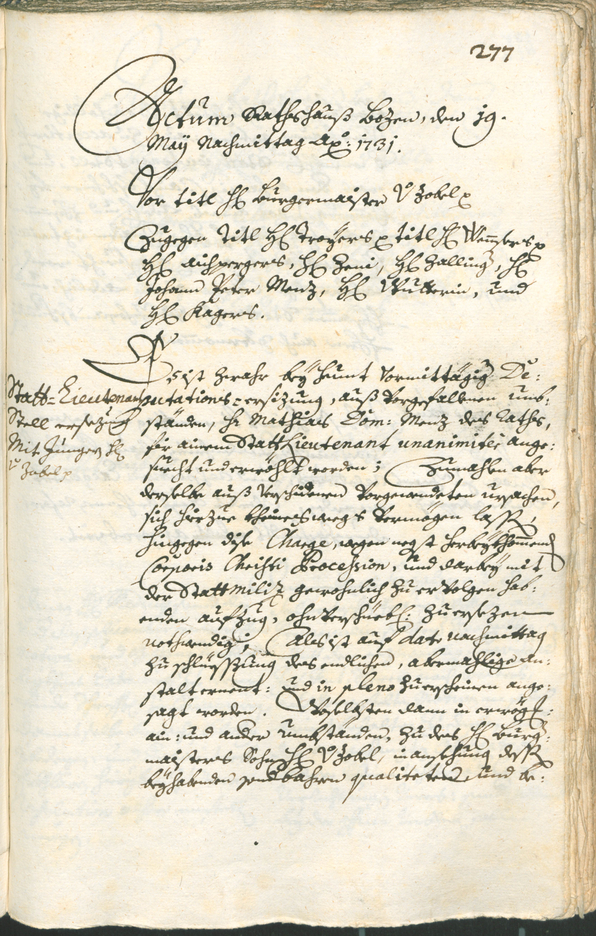 277
Actum Rathshauß Bozen, den 19.
Maÿ Nachmittag Aõ: 1731.
Vor titl H: Burgermaister v Zobel p
Zugegen titl H: Troÿers p titl H: Wenser p
H: Aichpergers, H: Zeni, H: Zalling, H:
Johann Peter Menz, H: Gulterin, und
H: Kagers.
Statt-Lieutenant
Stell ersezung
Mit Jungen H:
v Zobel p
Es ist zwahr beÿ heunt Vormittägig De-
putations-ersizung, auß Vorgefallnen umb-
ständen, H: Mathias Dom: Menz des Raths,
für ainem Statt Lieutenant unanimiter ange-
suecht und erwöhlt worden; Zumahlen aber
derselbe auß verschidenen Vorgewendeten ursachen,
sich hierzue keineswegs vermögen lasst,
hingegen dise Charge, wegen negst herbeÿkhomend
Corporis Christi Procession, und darbeÿ mit
der Stattmiliz gewohnlich zu ervolgen hab-
enden aufzug, ohnverschiebl: zu ersezen
nothwendig; Als ist auf dato nachmittag
zu schlüessung des endlichen, abermahlige an-
stalt ernent: und in pleno zu erscheinen ange-
sagt worden. Woselbsten dann in erwög-
ain: und ander umbständen, zu des H: Burg-
maisters Sohn H: v Zobel, in ansehung dessen
beÿhabenden sonderbahren qualiteten, und be-